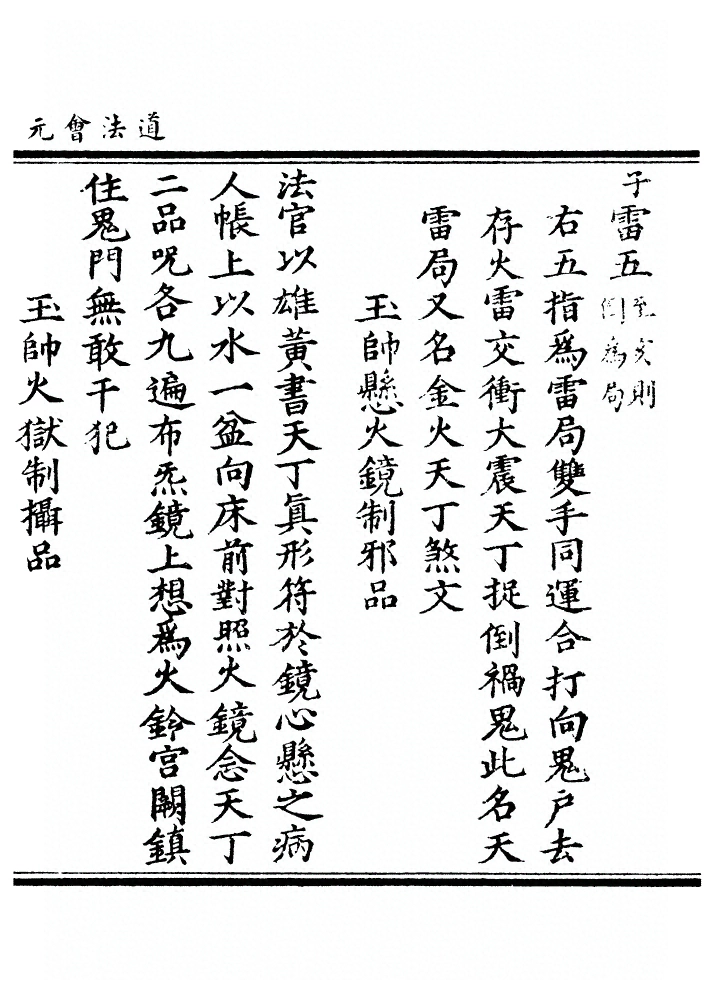 道法會元
子雷五至亥則倒爲局
右五指爲雷局雙手同運合打向鬼戶去
存火雷交衝大震天丁捉倒禍鬼此名天
雷局又名金火天丁煞文
王帥懸火鏡制邪品
法官以雄黃書天丁眞形符於鏡心懸之病
人帳上以水一盆向床前對照火鏡念天丁
二品呪各九遍布炁鏡上想爲火鈴宮闕鎮
住鬼門無敢干犯
王帥火獄制攝品